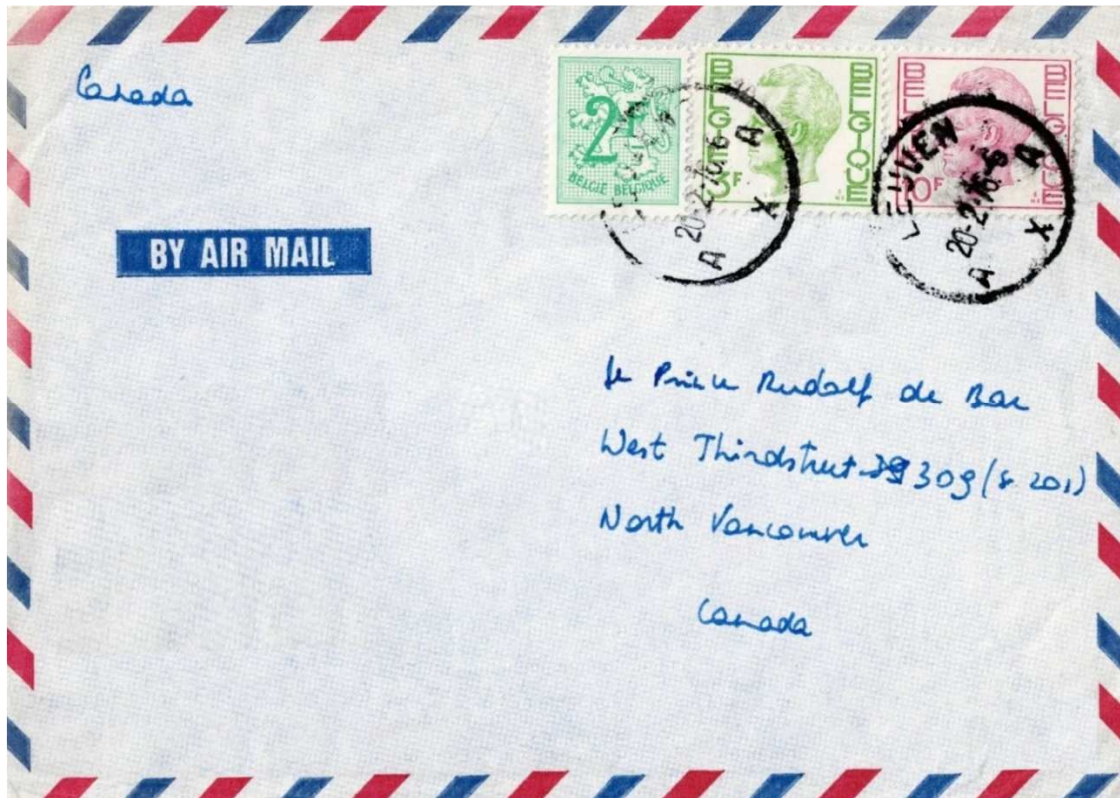 Canada
2F
BELGIË BELGIQUE
BELGIE BELGIQUE
3F
BELGIE BELGIQUE
10F
A A X
20-2-76
LEUVEN
A A X
20-2-76
BY AIR MAIL
le Prince Rudolf de Bar
West Thirdstreet 309 (s. 201)
North Vancouver
Canada